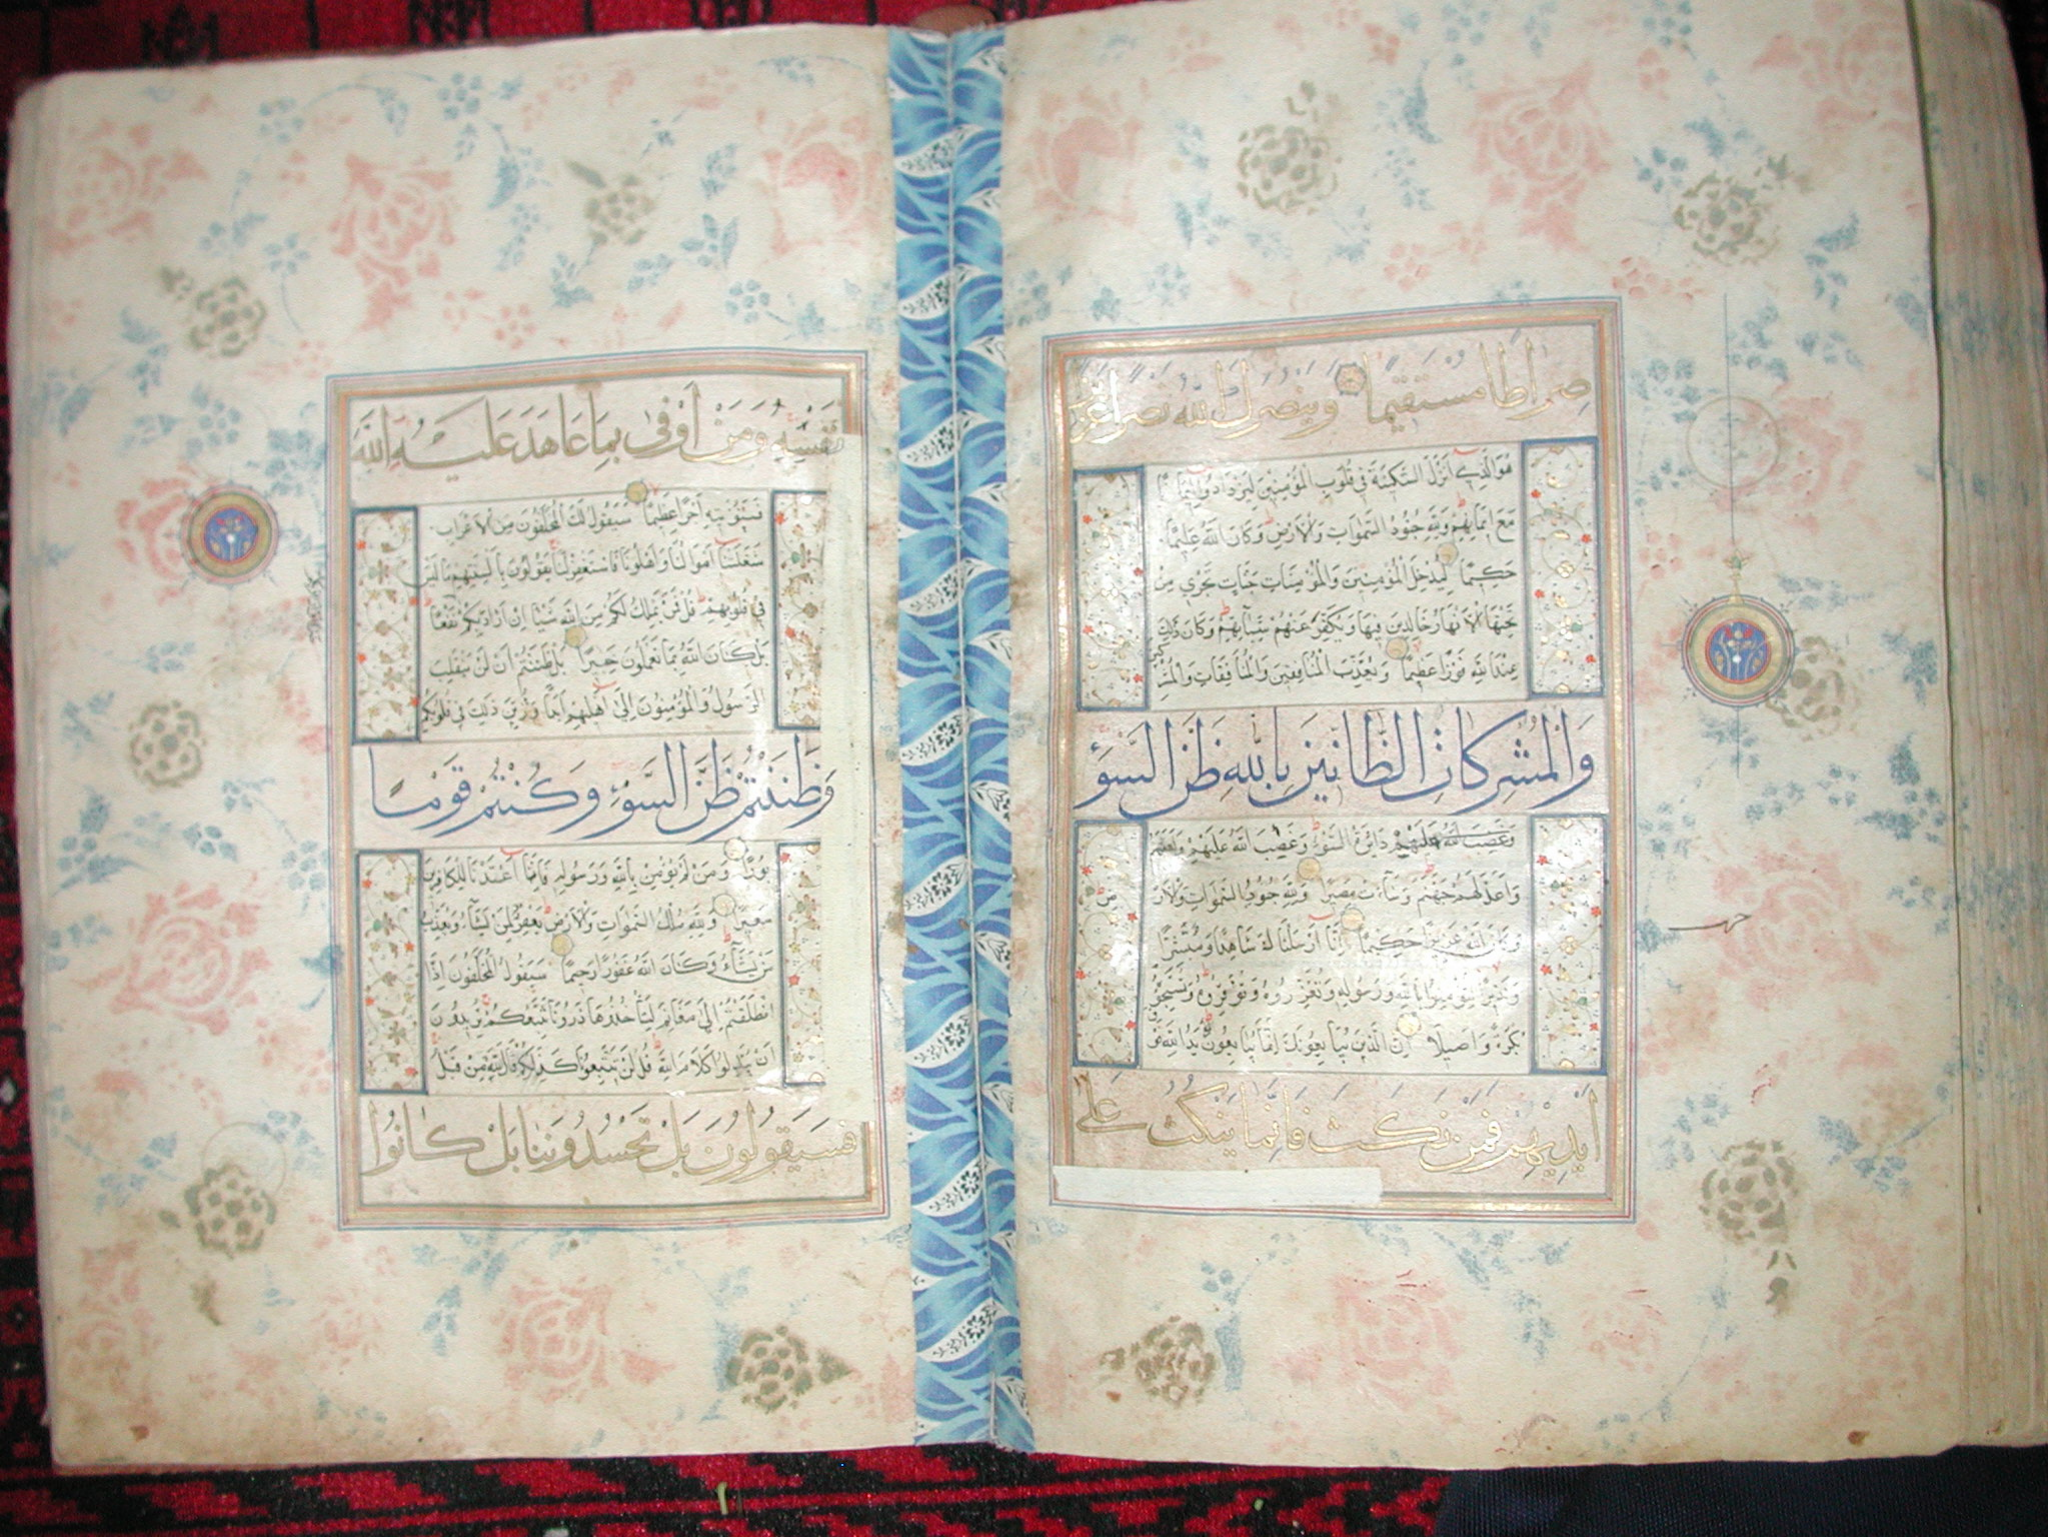 صراطا مستقيما وينصرك الله نصرا عزيزا
هُوَ الَّذِي أَنْزَلَ السَّكِينَةَ فِي قُلُوبِ الْمُؤْمِنِينَ لِيَزْدَادُوا إِيمَانًا
مَعَ إِيمَانِهِمْ وَلِلَّهِ جُنُودُ السَّمَوَاتِ وَالْأَرْضِ وَكَانَ اللَّهُ عَلِيمًا
حَكِيمًا لِيُدْخِلَ الْمُؤْمِنِينَ وَالْمُؤْمِنَاتِ جَنَّاتٍ تَجْرِي مِنْ
تَحْتِهَا الْأَنْهَارُ خَالِدِينَ فِيهَا وَيُكَفِّرَ عَنْهُمْ سَيِّئَاتِهِمْ وَكَانَ ذَلِكَ
عِنْدَ اللَّهِ فَوْزًا عَظِيمًا وَيُعَذِّبَ الْمُنَافِقِينَ وَالْمُنَافِقَاتِ وَالْمُشْرِكِينَ
وَالْمُشْرِكَاتِ الظَّانِّينَ بِاللَّهِ ظَنَّ السَّوْءِ
عَلَيْهِمْ دَائِرَةُ السَّوْءِ وَغَضِبَ اللَّهُ عَلَيْهِمْ وَلَعَنَهُمْ
وَأَعَدَّ لَهُمْ جَهَنَّمَ وَسَاءَتْ مَصِيرًا وَلِلَّهِ جُنُودُ السَّمَوَاتِ وَالْأَرْضِ
وَكَانَ اللَّهُ عَزِيزًا حَكِيمًا إِنَّا أَرْسَلْنَاكَ شَاهِدًا وَمُبَشِّرًا
وَنَذِيرًا لِتُؤْمِنُوا بِاللَّهِ وَرَسُولِهِ وَتُعَزِّرُوهُ وَتُوَقِّرُوهُ وَتُسَبِّحُوهُ
بُكْرَةً وَأَصِيلًا إِنَّ الَّذِينَ يُبَايِعُونَكَ إِنَّمَا يُبَايِعُونَ اللَّهَ يَدُ اللَّهِ فَوْقَ
أَيْدِيهِمْ فَمَنْ نَكَثَ فَإِنَّمَا يَنْكُثُ عَلَى
نَفْسِهِ وَمَنْ أَوْفَى بِمَا عَاهَدَ عَلَيْهُ اللَّهَ
فَسَيُؤْتِيهِ أَجْرًا عَظِيمًا سَيَقُولُ لَكَ الْمُخَلَّفُونَ مِنَ الْأَعْرَابِ
شَغَلَتْنَا أَمْوَالُنَا وَأَهْلُونَا فَاسْتَغْفِرْ لَنَا يَقُولُونَ بِأَلْسِنَتِهِمْ مَا لَيْسَ
فِي قُلُوبِهِمْ قُلْ فَمَنْ يَمْلِكُ لَكُمْ مِنَ اللَّهِ شَيْئًا إِنْ أَرَادَ بِكُمْ نَفْعًا
بَلْ كَانَ اللَّهُ بِمَا تَعْمَلُونَ خَبِيرًا بَلْ ظَنَنْتُمْ أَنْ لَنْ يَنْقَلِبَ
الرَّسُولُ وَالْمُؤْمِنُونَ إِلَى أَهْلِيهِمْ أَبَدًا وَزُيِّنَ ذَلِكَ فِي قُلُوبِكُمْ
وَظَنَنْتُمْ ظَنَّ السَّوْءِ وَكُنْتُمْ قَوْمًا
بُورًا وَمَنْ لَمْ يُؤْمِنْ بِاللَّهِ وَرَسُولِهِ فَإِنَّا أَعْتَدْنَا لِلْكَافِرِينَ
سَعِيرًا وَلِلَّهِ مُلْكُ السَّمَوَاتِ وَالْأَرْضِ يَغْفِرُ لِمَنْ يَشَاءُ وَيُعَذِّبُ
مَنْ يَشَاءُ وَكَانَ اللَّهُ غَفُورًا رَحِيمًا سَيَقُولُ الْمُخَلَّفُونَ إِذَا
انْطَلَقْتُمْ إِلَى مَغَانِمَ لِتَأْخُذُوهَا ذَرُونَا نَتَّبِعْكُمْ يُرِيدُونَ
أَنْ يُبَدِّلُوا كَلَامَ اللَّهِ قُلْ لَنْ تَتَّبِعُونَا كَذَلِكُمْ قَالَ اللَّهُ مِنْ قَبْلُ
فَسَيَقُولُونَ بَلْ تَحْسُدُونَنَا بَلْ كَانُوا